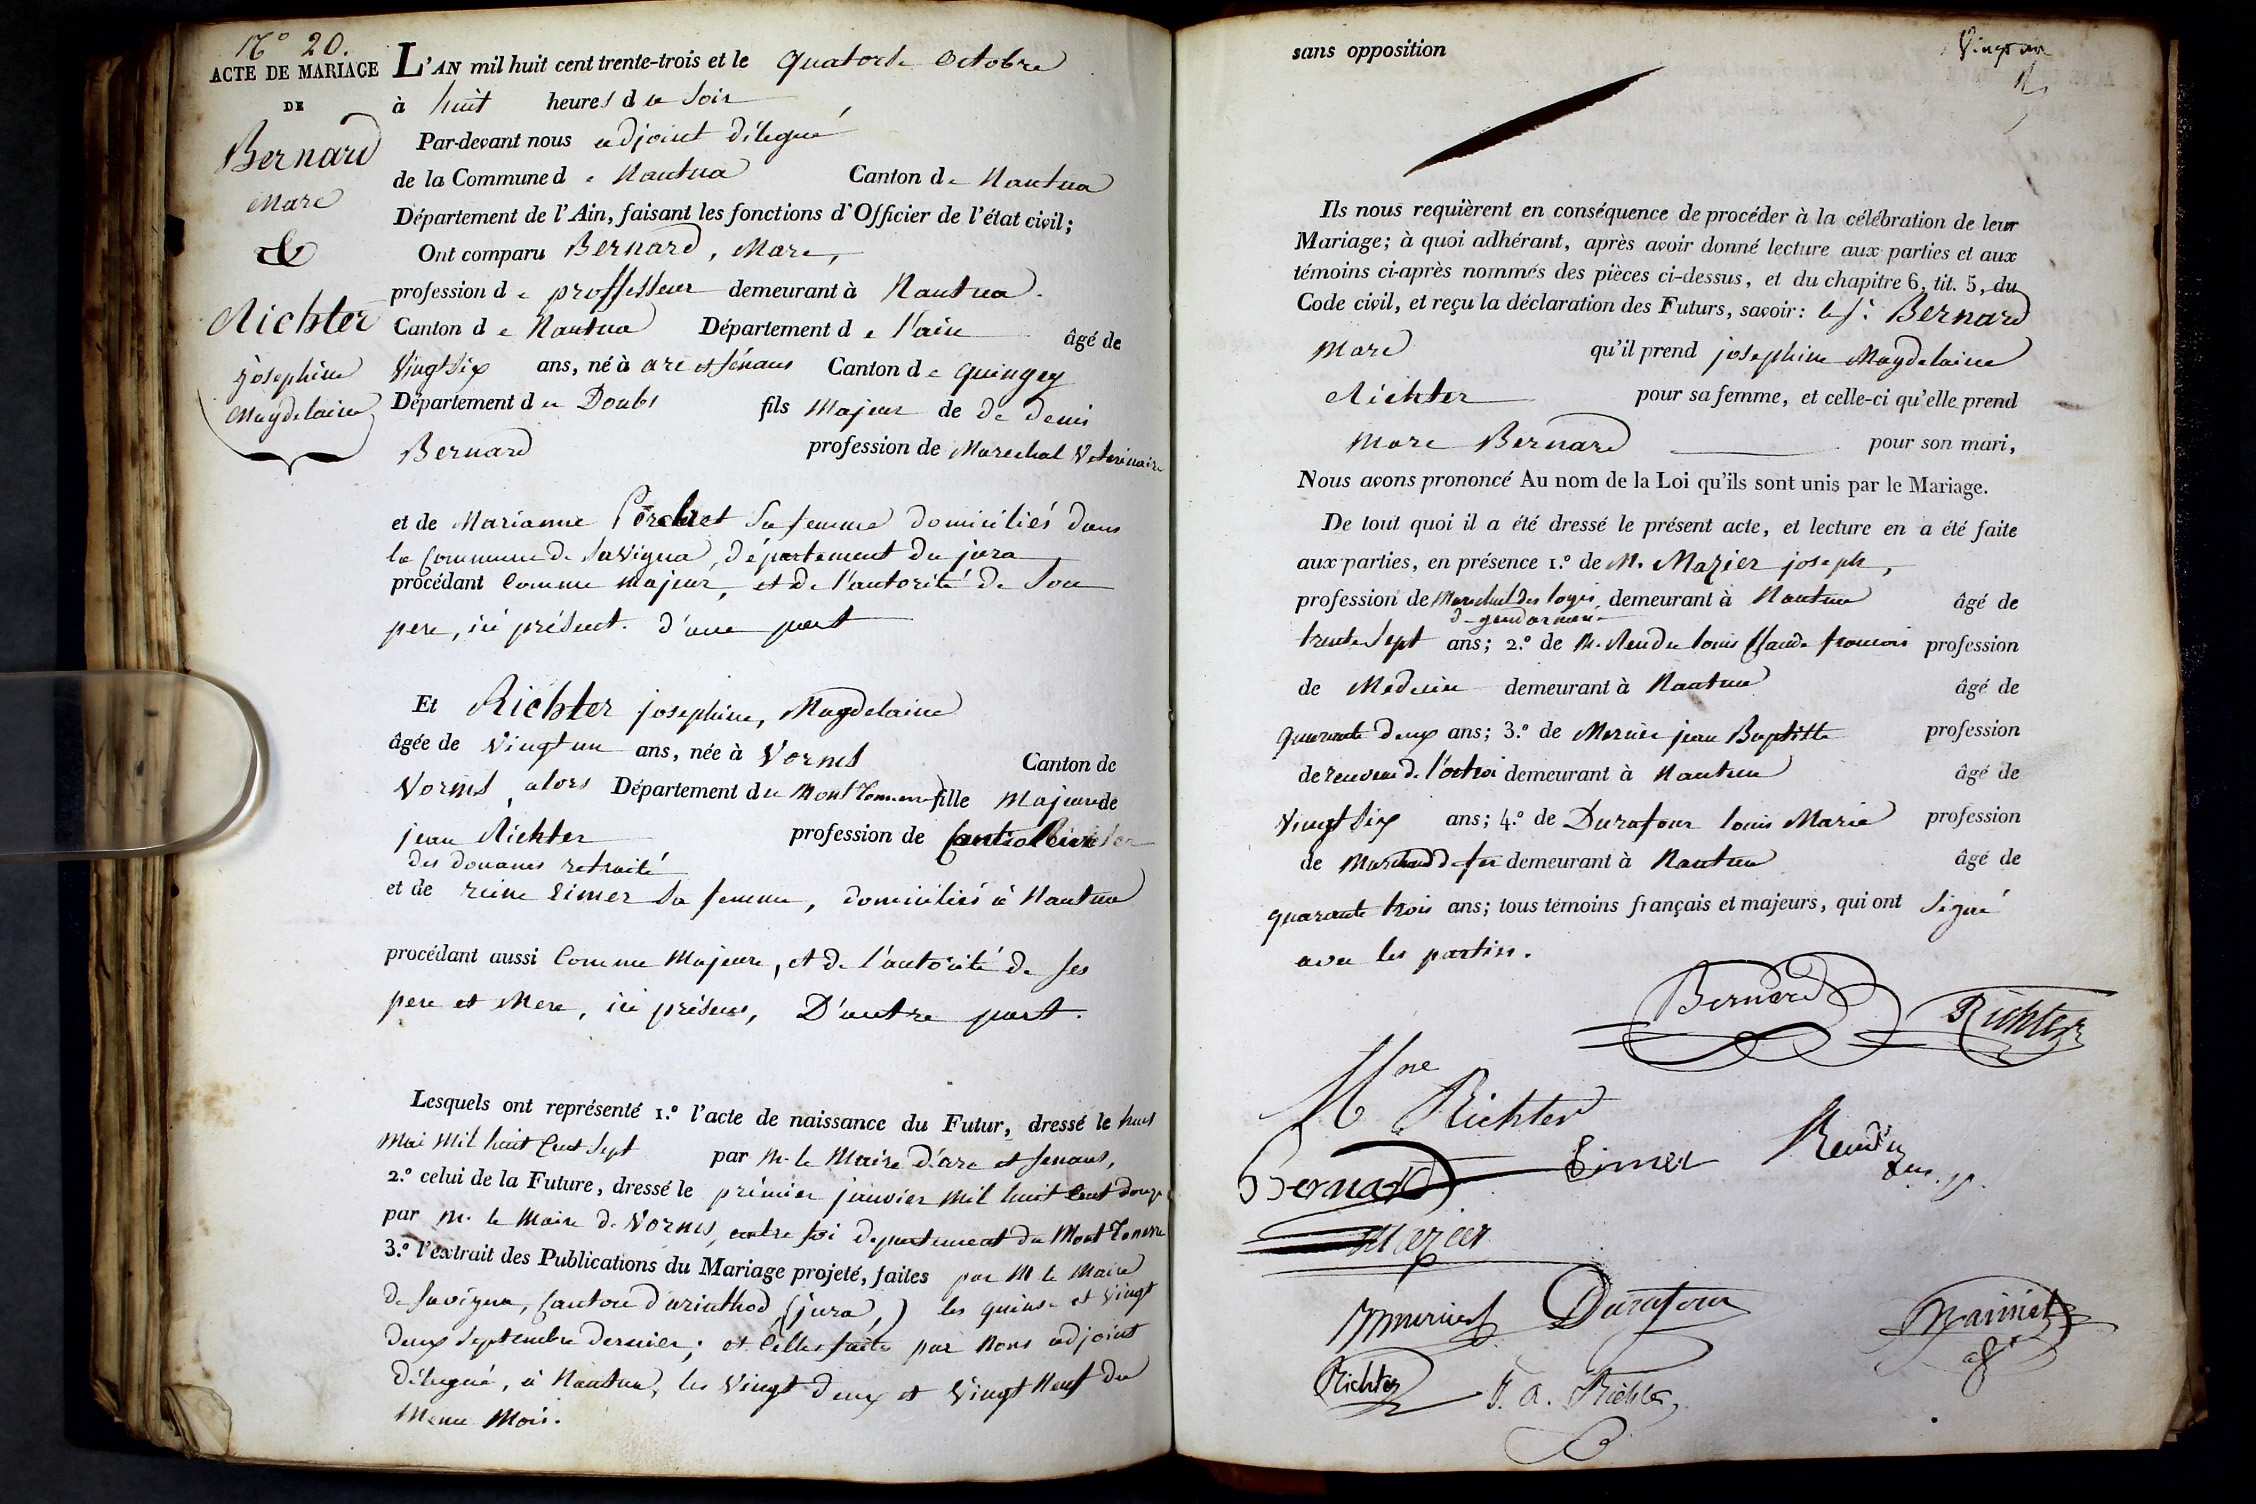 N° 20.
ACTE DE MARIAGE
DE
Bernard
Marc
&
Richter
josephine
Magdelaine
L'AN mil huit cent trente-trois et le quatorze octobre
à huit heures du soir
Par-devant nous adjoint délegué
de la Commune de Nantua Canton de Nantua
Département de l'Ain, faisant les fonctions d'Officier de l'état civil;
Ont comparu Bernard, Marc,
profession de proffesseur demeurant à Nantua.
Canton de Nantua Département de l'ain âgé de
Vingt Six ans, né à arc et Sénans Canton de quingey
Département du Doubs fils Majeur de de denis
Bernard profession de Marechal Veterinaire
et de Marianne sa femme domiciliés dans
la Commune de Savigna, département du jura
procédant comme majeur, et de l'autorité de Son
pere, ici présent. d'une part
Et Richter josephine, Magdelaine
âgée de Vingt un ans, née à Vorms Canton de
Vorms, alors Département du Mont Tonnerre fille Majeure de
jean Richter profession de
des douanes retraité
et de reine Eimer Sa femme, domiciliés à Nantua
procédant aussi Comme Majeure, et de l'autorité de Ses
pere et Mere, ici présens, D'autre part.
Lesquels ont représenté 1.° l'acte de naissance du Futur, dressé le huit
Mai Mil huit Cent Sept par M. le Maire d'arc et Senans,
2.° celui de la Future, dressé le prémier janvier Mil huit Cent douze
par M. le Maire de Vorms, département du Mont Tonnerre
3.° l'extrait des Publications du Mariage projeté, faites par M le Maire
de Savigna, Canton d'arinthod (jura,) les quinze et Vingt
deux Septembre dernier; et Celles faites par Nous adjoint
délegué, à Nantua, les Vingt deux et Vingt Neuf du
Meme Mois.
sans opposition
Ils nous requièrent en conséquence de procéder à la célébration de leur
Mariage; à quoi adhérant, après avoir donné lecture aux parties et aux
témoins ci-après nommés des pièces ci-dessus, et du chapitre 6, tit. 5, du
Code civil, et reçu la déclaration des Futurs, savoir: le Sr. Bernard
Marc qu'il prend josephine Magdelaine
Richter pour sa femme, et celle-ci qu'elle prend
Marc Bernard pour son mari,
Nous avons prononcé Au nom de la Loi qu'ils sont unis par le Mariage.
De tout quoi il a été dressé le présent acte, et lecture en a été faite
aux parties, en présence 1.° de M. Mazier joseph,
profession de Marechal des logis demeurant à Nantua âgé de
de gendarmerie
trente Sept ans; 2.° de M. Rendu louis Claude francois profession
de Medecin demeurant à Nantua âgé de
quarante deux ans; 3.° de Mercier jean Baptiste profession
de receveur de l'octroi demeurant à Nantua âgé de
Vingt Six ans; 4.° de Durafour louis Marie profession
de Marchand de fer demeurant à Nantua âgé de
quarante trois ans; tous témoins français et majeurs, qui ont Signé
avec les parties.
Bernard Richter
Mne Richter
Bernard Eimer Rendu
Mazier
Durafour
Richter J. A. Richter